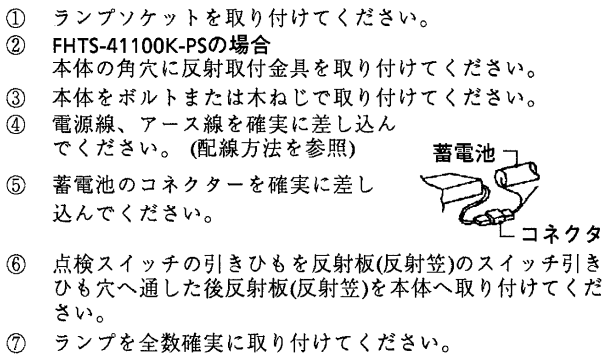 ① ランプソケットを取り付けてください。
② FHTS-41100K-PSの場合
本体の角穴に反射取付金具を取り付けてください。
③ 本体をボルトまたは木ねじで取り付けてください。
④ 電源線、アース線を確実に差し込ん
でください。 (配線方法を参照)
蓄電池
⑤ 蓄電池のコネクターを確実に差し
込んでください。
コネクタ
⑥ 点検スイッチの引きひもを反射板(反射笠)のスイッチ引き
ひも穴へ通した後反射板(反射笠)を本体へ取り付けてくだ
さい。
⑦ ランプを全数確実に取り付けてください。